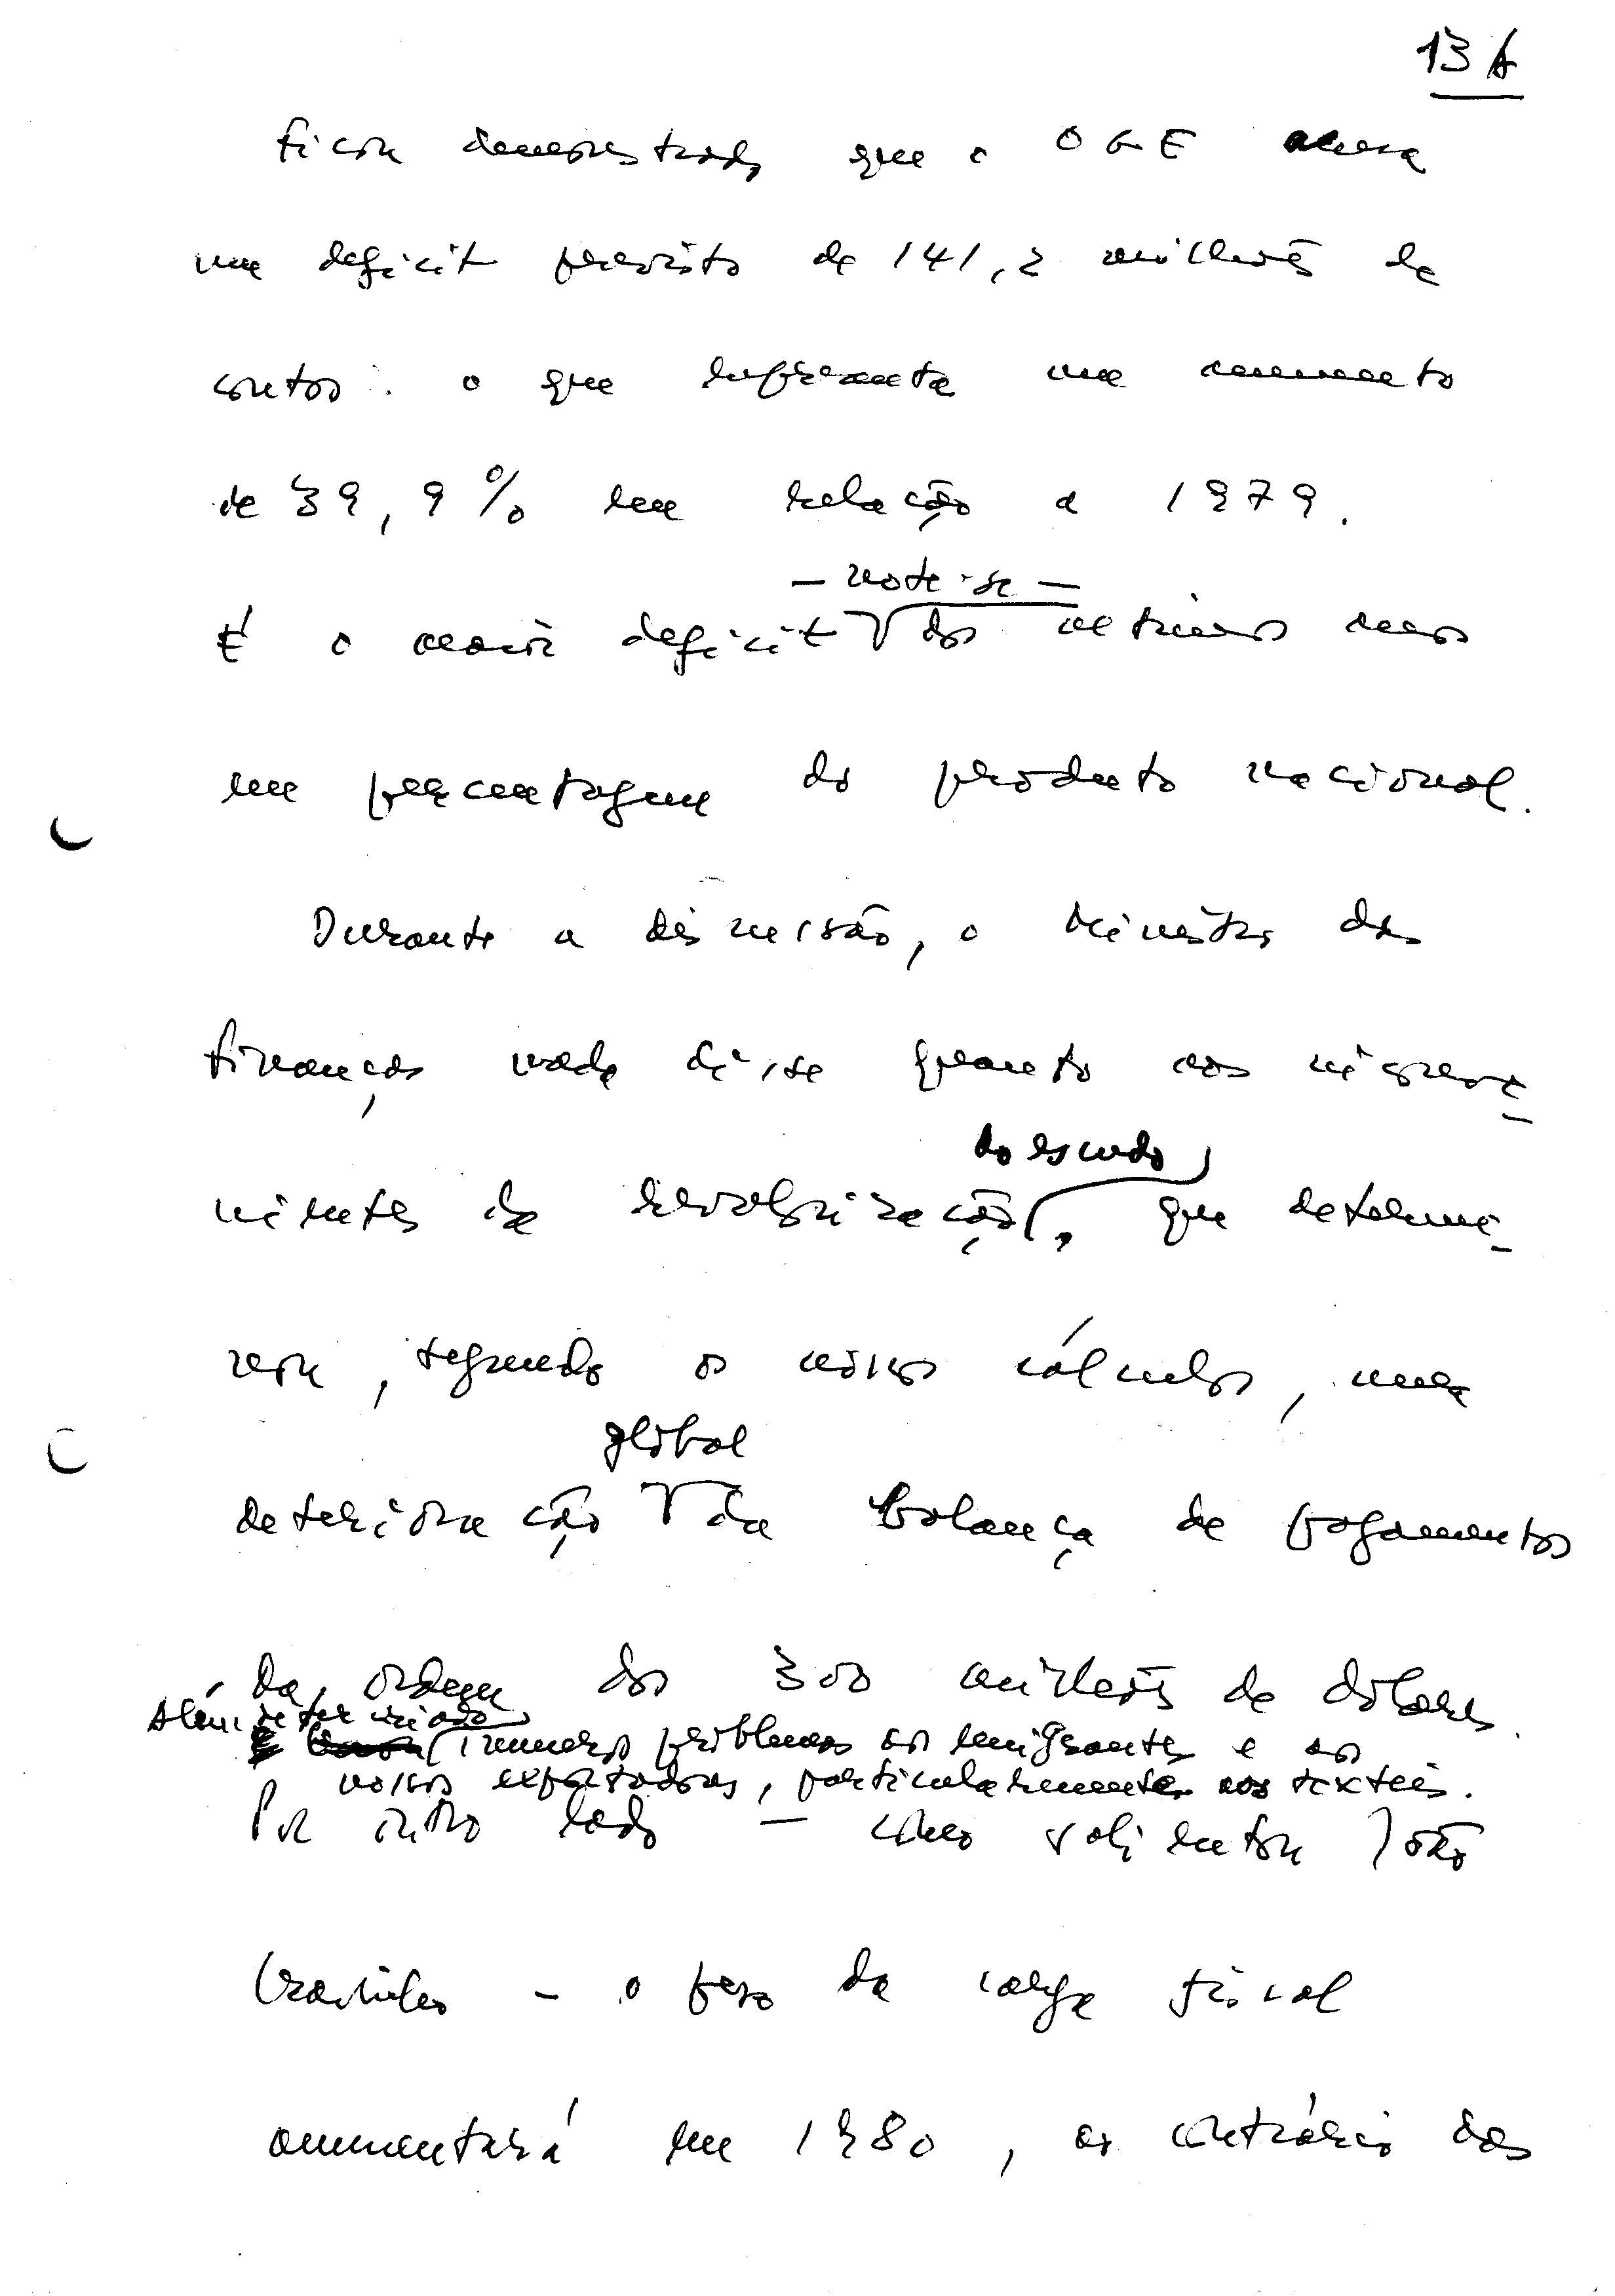 13 A
Ficou demonstrado que o OGE acusa
um deficit previsto de 141,2 milhões de
contos: o que representa um aumento
de 39,9% em relação a 1979.
— note-se —
É o maior deficit dos últimos anos
em percentagem do produto nacional.
Durante a discussão, o ministro das
finanças nada disse quanto aos inconve-
nientes da revalorização, que determi-
do escudo
nou, segundo os nossos cálculos, uma
global
deterioração da balança de pagamentos
da ordem dos 300 milhões de dólares.
Além de ter criado
inúmeros problemas aos emigrantes e aos
nossos exportadores, particularmente aos têxteis.
Por outro lado — como salientou João
Cravinho — o peso da carga fiscal
aumentará em 1980, ao contrário das